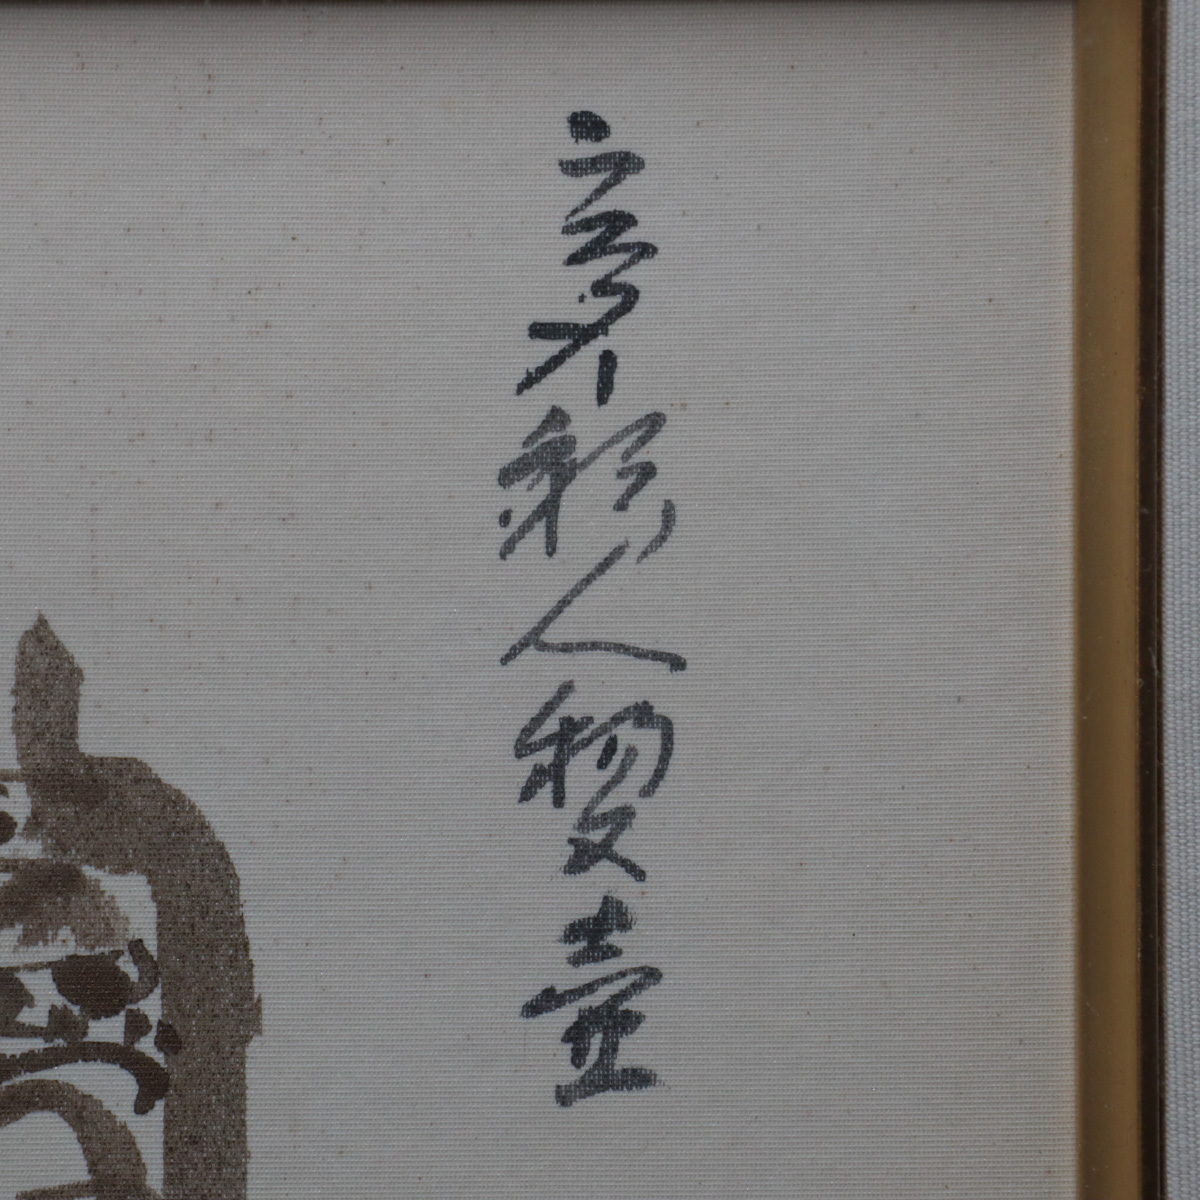 彩人物文壺